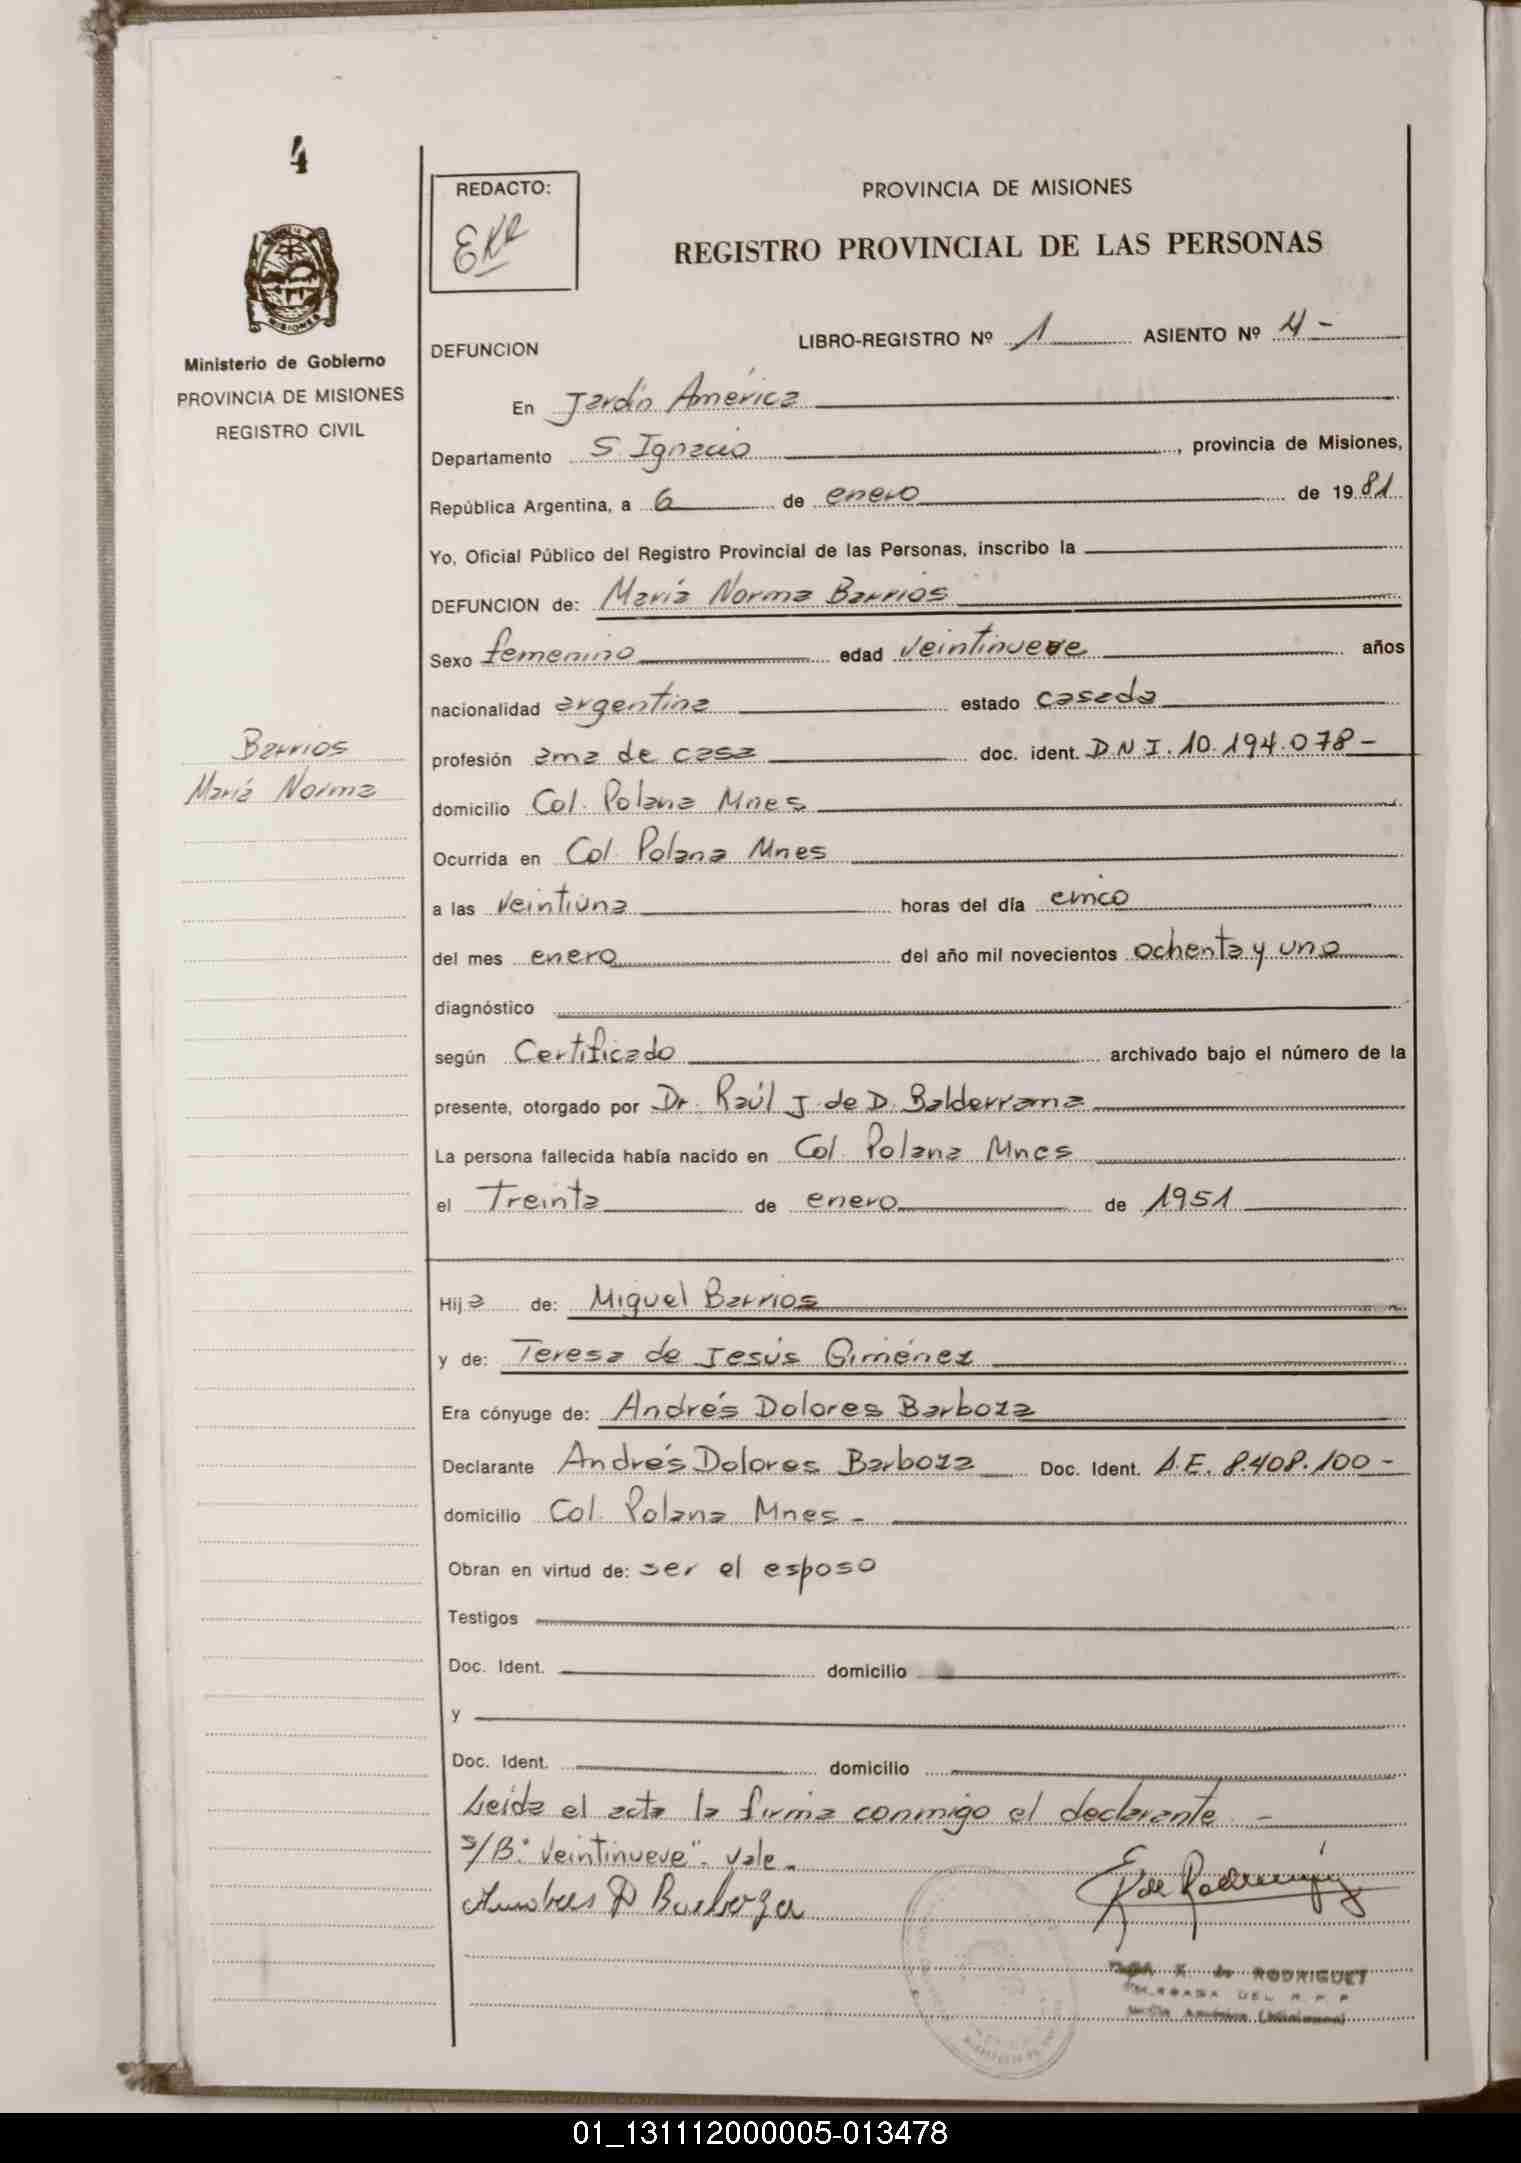 4
REDACTO:
EKR
PROVINCIA DE MISIONES
REGISTRO PROVINCIAL DE LAS PERSONAS
MISIONES
Ministerio de Gobierno
PROVINCIA DE MISIONES
REGISTRO CIVIL
DEFUNCION
LIBRO-REGISTRO Nº 1 ASIENTO Nº 4 -
En Jardín América
Departamento S. Ignacio, provincia de Misiones,
República Argentina, a 6 de enero de 1981
Yo, Oficial Público del Registro Provincial de las Personas, inscribo la
DEFUNCION de: María Norma Barrios
Sexo femenino edad veintinueve años
nacionalidad argentina estado casada
Barrios
María Norma
profesión ama de casa doc. ident. D.N.I. 10.194.078 -
domicilio Col. Polana Mnes
Ocurrida en Col. Polana Mnes
a las veintiuna horas del día cinco
del mes enero del año mil novecientos ochenta y uno
diagnóstico
según Certificado archivado bajo el número de la
presente, otorgado por Dr. Raúl J. de D. Balderrama
La persona fallecida había nacido en Col. Polana Mnes
el Treinta de enero de 1951
Hija de: Miguel Barrios
y de: Teresa de Jesús Giménez
Era cónyuge de: Andrés Dolores Barboza
Declarante Andrés Dolores Barboza Doc. Ident. L.E. 8.408.100 -
domicilio Col. Polana Mnes -
Obran en virtud de: ser el esposo
Testigos
Doc. Ident. domicilio
y
Doc. Ident. domicilio
Leída el acta la firma conmigo el declarante -
S/B: "veintinueve". vale.
D Barboza
K. de Rodriguez
K. de RODRIGUEZ
DEL R.P.P
América (Misiones)
01_131112000005-013478